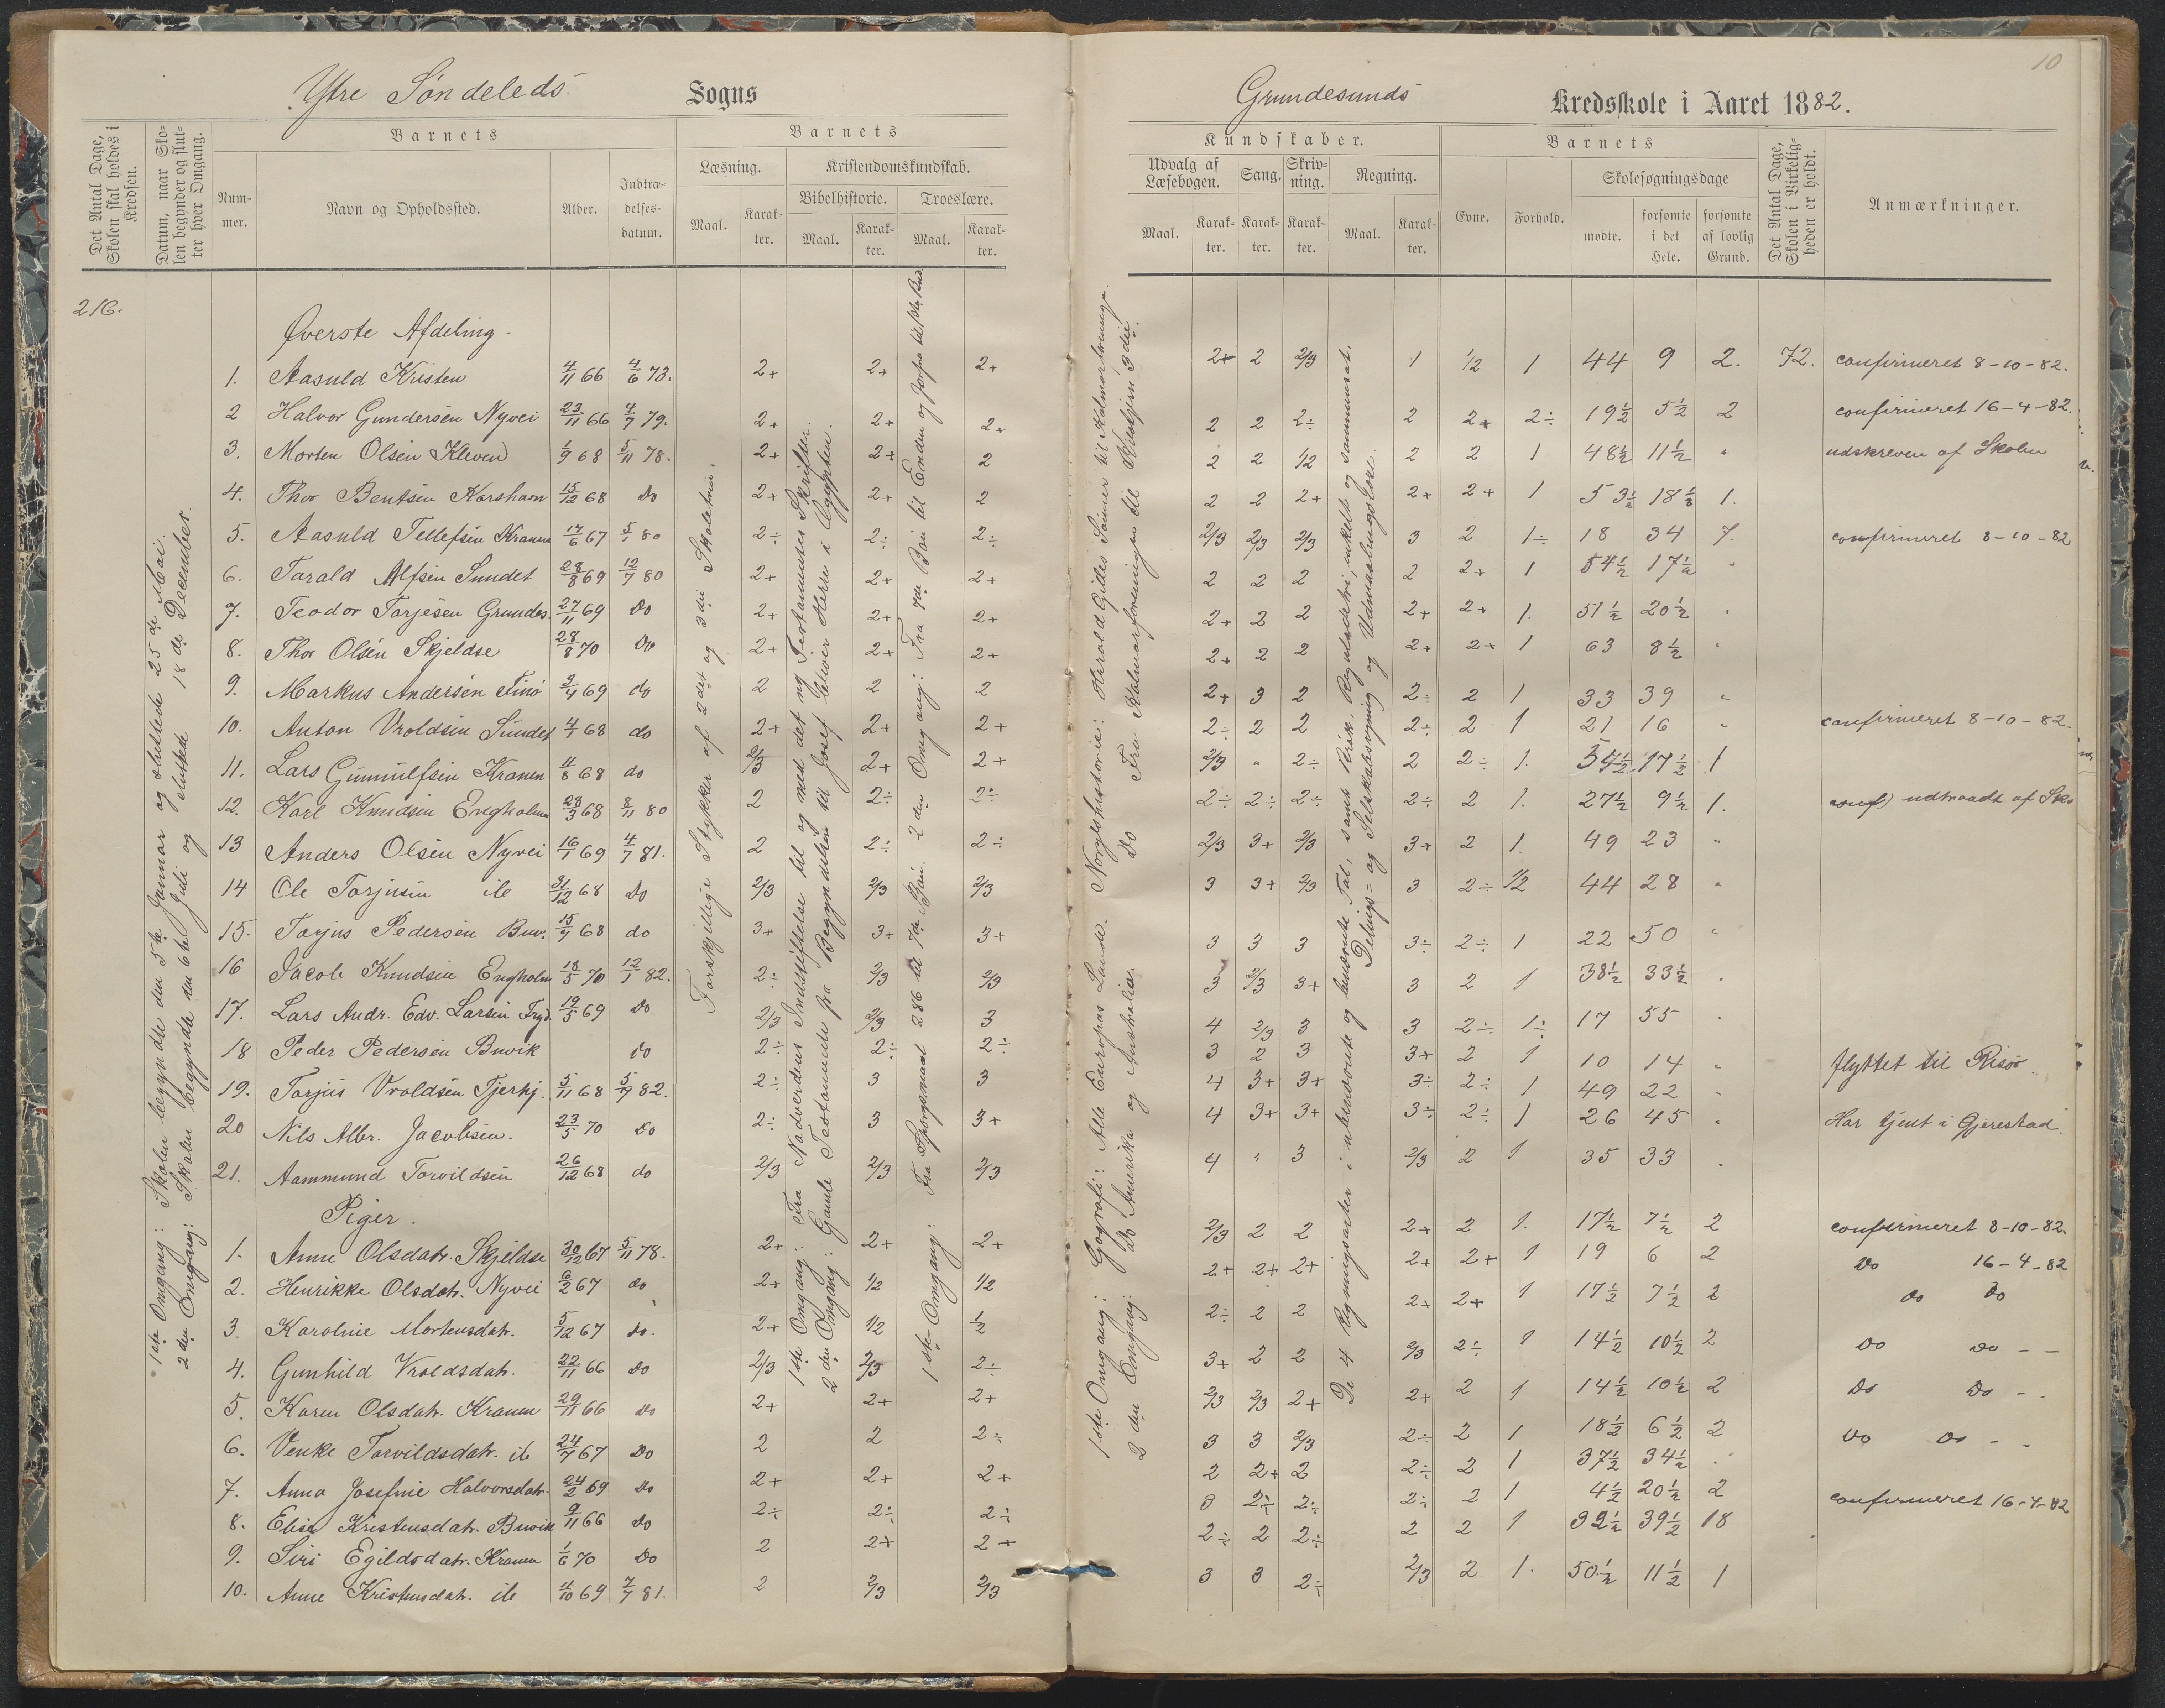 Ytre Søndeleds Sogns
Det Antal Dage, Skolen skal holdes i Kredsen.
Datum, naar Skolen begynder og slutter hver Omgang.
Barnets
Nummer.
Navn og Opholdssted.
Alder.
Indtrædelsesdatum.
Barnets
Læsning.
Kristendomskundskab.
Bibelhistorie.
Troeslære.
Maal.
Karakter.
Maal.
Karakter.
Maal.
Karakter.
216.
1ste Omgang: Skolen begyndte den 5te Januar og sluttede 25de Mai.
2den Omgang: Skolen begyndte den 6te Juli og sluttede 18de December.
Forskjellige Stykker af 2det og 3die Skoletrin.
1ste Omgang: Fra Nadverdens Indstiftelse til og med det ny Testamentes Skrifter.
2den Omgang: Gamle Testamente fra Begyndelsen til Josef bliver Herre i Egypten.
1ste Omgang: Fra Spørgsmaal 286 til 7de Bøn. 2den Omgang: Fra 7de Bøn til Enden og Forfra til 3die Bud.
Øverste Afdeling.
1. Aasuld Kristen 4/11 66 4/6 73. 2+ 2+ 2+
2 Halvor Gundersen Nyvei 23/11 66 4/7 79. 2+ 2+ 2+
3. Morten Olsen Kleven 1/9 68 5/11 78. 2+ 2+ 2
4. Thor Bentsen Korshavn 15/12 68 Do 2+ 2+ 2
5. Aasuld Tellefsen Kranen 17/6 67 5/1 80 2÷ 2÷ 2÷
6. Tarald Alfsen Sundet 28/8 69 12/7 80 2+ 2+ 2+
7. Teodor Torjesen Grundes. 27/11 69 Do 2+ 2+ 2+
8. Thor Olsen Skjeldsø 28/8 70 Do 2+ 2+ 2+
9. Markus Andersen Finø 3/4 69 do 2 2 2
10. Anton Vroldsen Sundet 4/1 68 do 2+ 2+ 2+
11. Lars Gunnulfsen Kranen 4/8 68 do 2/3 2+ 2+
12. Karl Knudsen Engholm 28/3 68 8/11 80 2 2÷ 2÷
13 Anders Olsen Nyvei 16/1 69 4/7 81. 2 2÷ 2÷
14 Ole Torjusen ib 31/12 68 Do 2/3 2/3 2/3
15. Torjus Pedersen Buv. 15/7 68 do 3+ 3+ 3+
16 Jacob Knudsen Engholm 18/5 70 12/1 82. 2÷ 2/3 2/3
17. Lars Andr. Edv. Larsen Tryd. 19/5 69 Do 2/3 2/3 3
18 Peder Pedersen Buvik Do 2÷ 2÷ 2÷
19. Torjus Vroldsen Tjerkj. 5/11 68 5/9 82. 2÷ 3 3
20 Nils Albr. Jacobsen. 23/5 70 Do 2÷ 3 3+
21. Aammund Torvildsen 26/12 68 do 2/3 2/3 2/3
Piger.
1. Anne Olsdatr. Skjeldsø 30/12 67 5/11 78. 2+ 2+ 2+
2. Henrikke Olsdatr. Nyvei 6/2 67 do 2+ 1/2 1/2
3. Karoline Mortensdatr. 5/12 67 do. 2+ 1/2 1/2
4. Gunhild Vroldsdatr. 22/11 66 Do 2/3 2/3 2÷
5. Karen Olsdatr. Kranen 29/11 66 Do 2+ 2+ 2+
6. Venke Torvildsdatr. ib 24/7 67 Do 2 2 2÷
7. Anna Josefine Halvorsdatr. 24/2 69 Do 2+ 2+ 2+
8. Elise Kristensdatr. Buvik 9/11 66 Do 2÷ 2÷ 2÷
9. Siri Egildsdatr. Kranen 1/6 70 Do 2 2+ 2+
10. Anne Kristensdatr. ib 4/10 69 7/7 81. 2 2/3 2/3
10
Grundesunds Kredsskole i Aaret 1882.
Kundskaber.
Udvalg af Læsebogen.
Sang.
Skrivning.
Regning.
Maal.
Karakter.
Karakter.
Karakter.
Maal.
Karakter.
Barnets
Evne.
Forhold.
Skolesøgningsdage
mødte.
forsømte i det Hele.
forsømte af lovlig Grund.
Det Antal Dage, Skolen i Virkeligheden er holdt.
Anmærkninger.
1ste Omgang: Geografi: Alle Europas Lande. Norgeshistorie: Harald Gilles Sønner til Kalmarforeninge.
2den Omgang: do Amerika og Australien. Do Fra Kalmarforeningen til Kristjern 3die.
De 4 Regningsarter i ubenævnte og benævnte Tal, samt Brøk, Reguladetri, enkelt og sammensat, Delings= og Selskabsregning og Udmaalingslære.
2+ 2 2/3 1 1/2 1 44 9 2. 72. confirmeret 8-10-82.
2 2 2÷ 2 2+ 2÷ 19½ 5½ 2 confirmeret 16-4-82.
2 2 1/2 2 2 1 48½ 11½ " udskreven af Skolen
2 2 2+ 2+ 2+ 1 53½ 18½ 1.
2/3 2/3 2/3 3 2 1÷ 18 34 7. confirmeret 8-10-82
2 2 2 2 2+ 1 54½ 17½ "
2+ 2 2 2+ 2+ 1. 51½ 20½ "
2+ 2 2 2+ 2+ 1 63 8½ "
2+ 3 2 2÷ 2 1 33 39 "
2÷ 2 2 2÷ 2 1 21 16 " confirmeret 8-10-82.
2/3 " 2÷ 2 2÷ 1. 54½ 17½ 1
2÷ 2÷ 2÷ 2÷ 2 1. 27½ 9½ 1. conf) udtraadt af Sko
2/3 3+ 2/3 3+ 2 1. 49 23 "
3 3+ 2/3 3 2÷ 1/2 44 28 "
3 3 3 3÷ 2÷ 1 22 50 "
3 2/3 3+ 3 2 1 38½ 33½ "
4 2/3 3 3 2÷ 1÷ 17 55 "
3 2 3 3+ 2 1 10 14 " flyttet til Risør.
4 3+ 3+ 3÷ 2÷ 1 49 22 "
4 3+ 3+ 3÷ 2÷ 1 26 45 " Har tjent i Gjerestad.
4 " 3 2/3 2 1 35 33 "
2/3 2 2 2+ 2 1. 17½ 7½ 2 confirmeret 8-10-82.
2+ 2+ 2+ 2+ 2+ 1 19 6 2 Do 16-4-82
2÷ 2 2 2+ 2+ 1 17½ 7½ 2 do Do
3+ 2 2 2/3 2÷ 1 14½ 10½ 2 Do Do - -
2/3 2/3 2+ 2+ 2 1 14½ 10½ 2 Do Do - -
3 3 2/3 2÷ 2 1 18½ 6½ 2 Do Do - -
2 2+ 2 2÷ 2 1 37½ 34½ "
3 2÷ 2÷ 2÷ 2 1 4½ 20½ 2 confirmeret 16-4-82
2÷ 2 2÷ 2 2 1 32½ 39½ 18
3 3 2÷ 2/3 2 1. 50½ 11½ 1